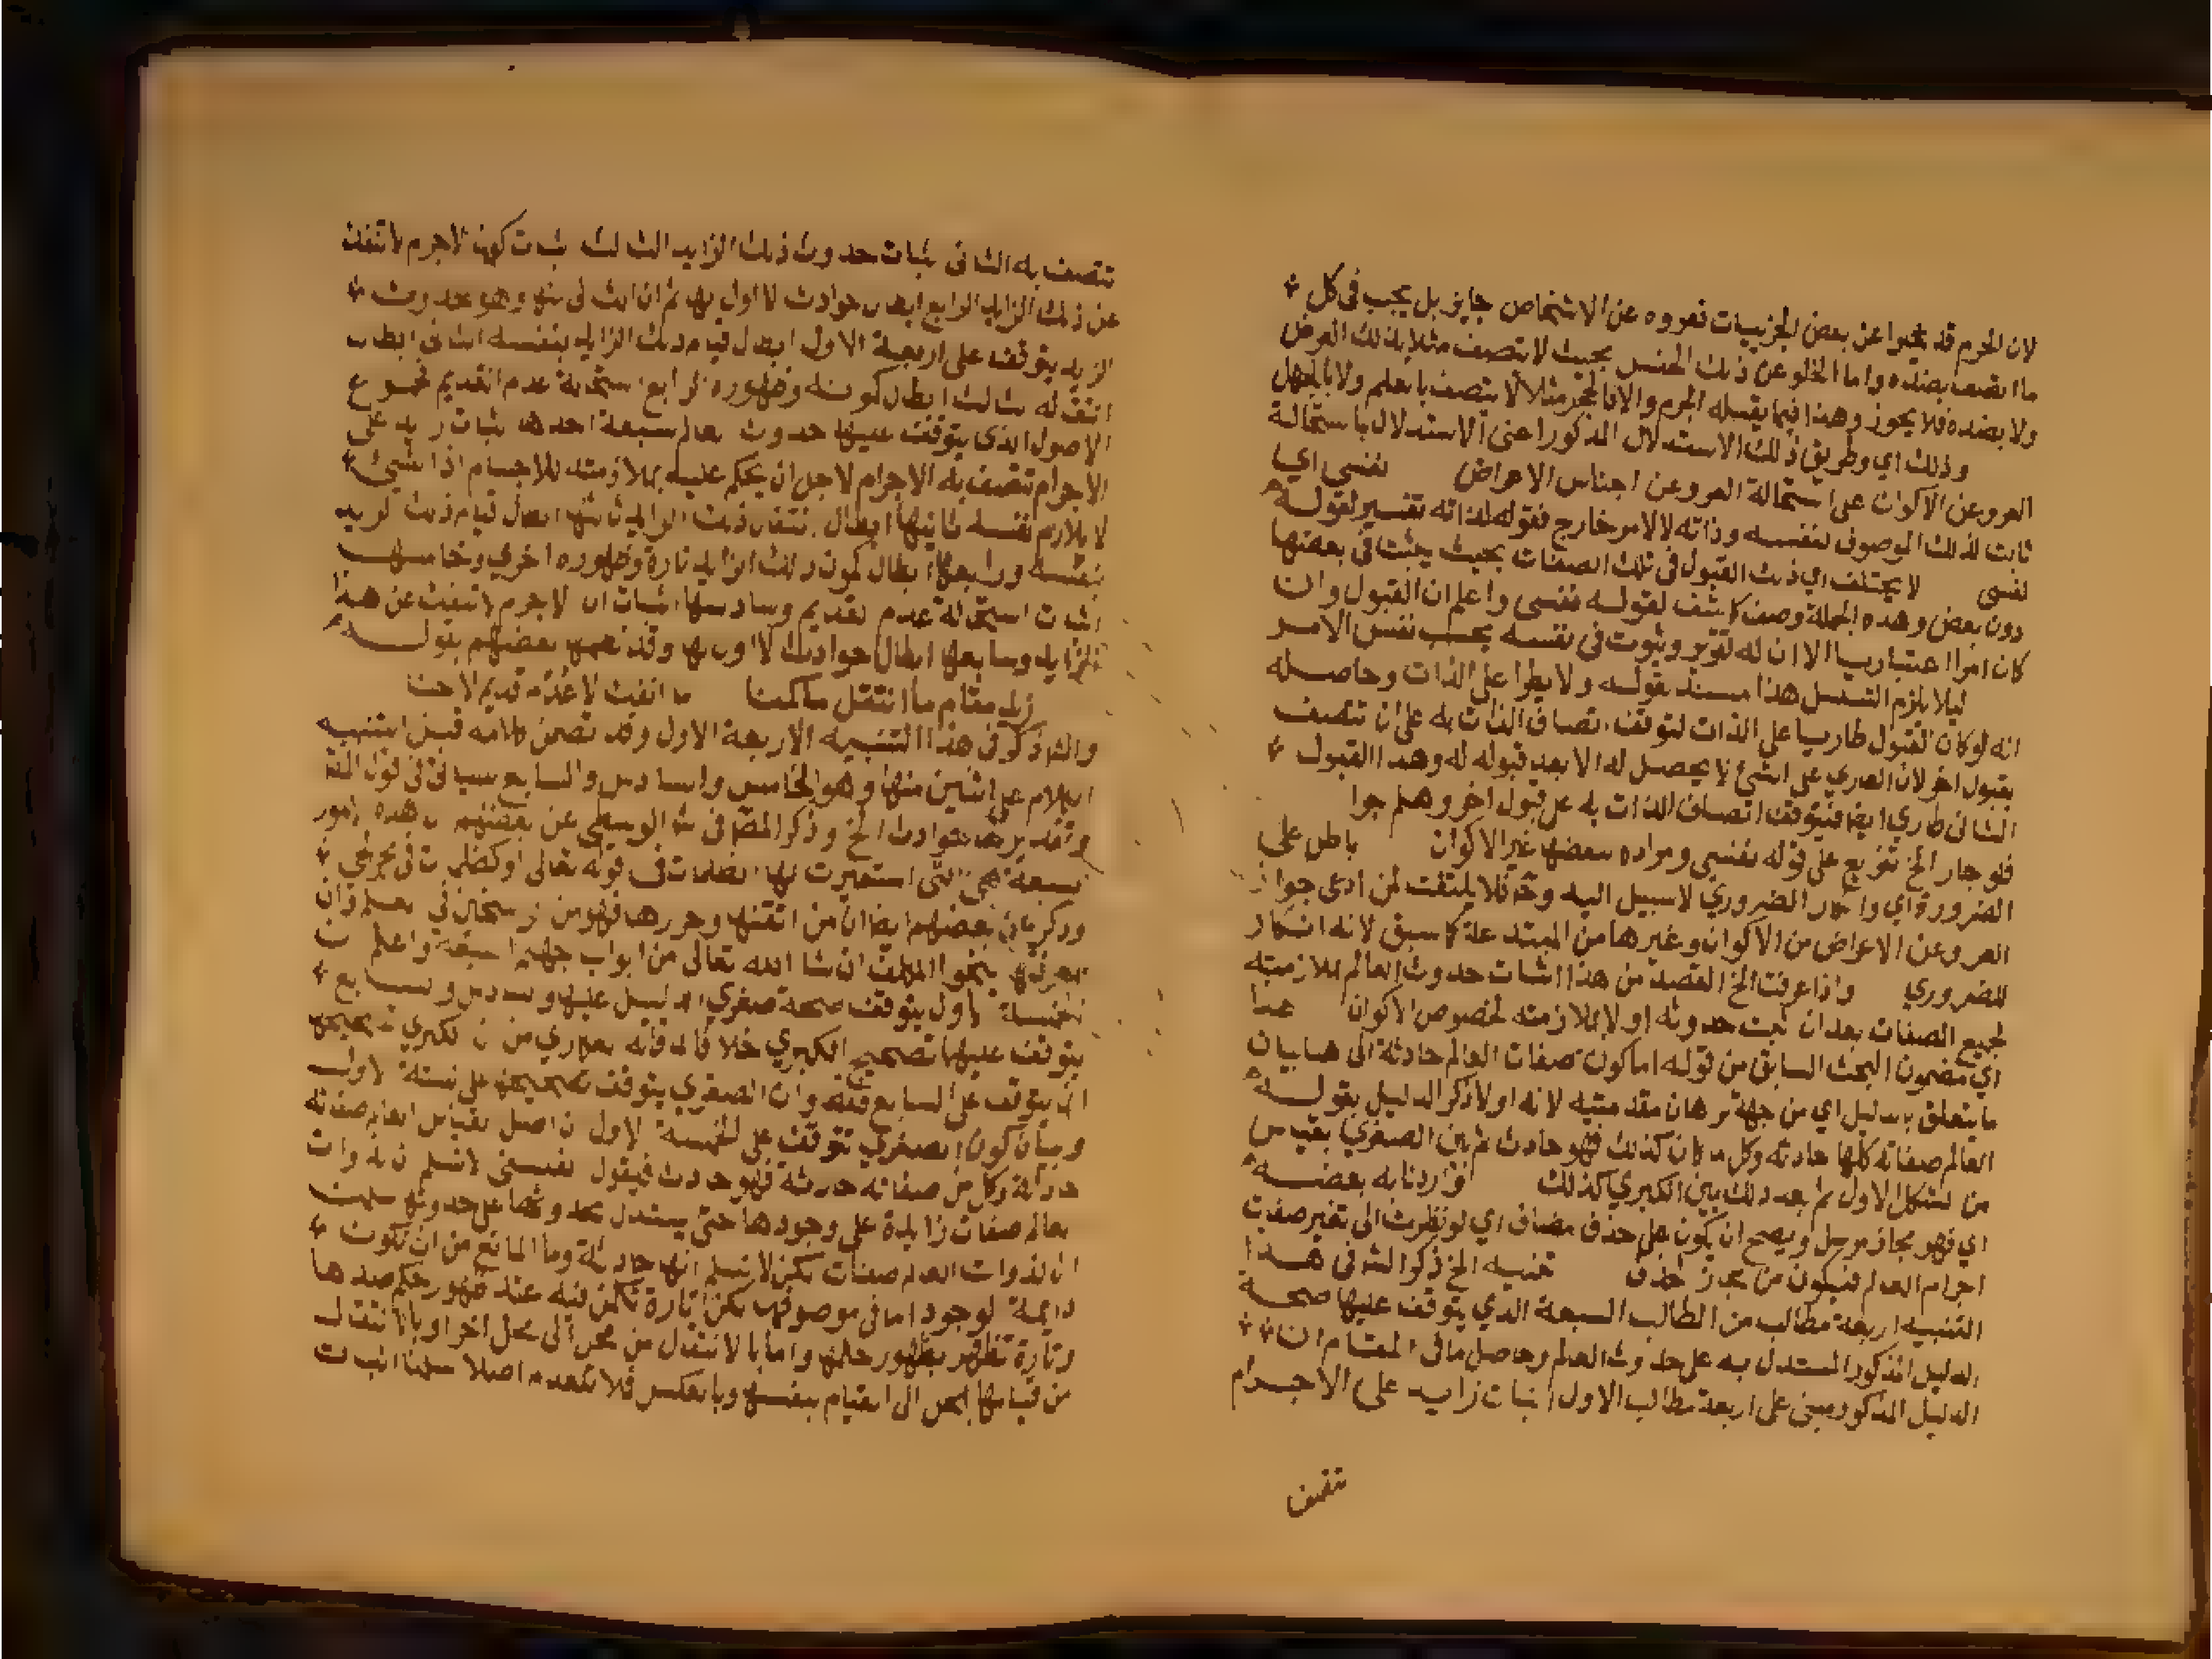 لان الجرم قد يخلوا عن بعض الجزييات فعروه عن الاشخاص جايز بل يجب فى كل
ما اتصف بضده واما الخلو عن ذلك الجنس بحيث لا يتصف مثلا بذلك العرض
ولا بضده فلا يجوز وهذا فيما يقبله الجرم والا فالحجر مثلا لا يتصف بالعلم ولا بالجهل
وذلك اي وطريق ذلك الاستدلال المذكور اعنى الاستدلال باستحالة
العرو عن الاكوان على استحالة العرو عن اجناس الاعراض نفسى اي
ثابت لذلك الموصوف لنفسه وذاته لا لامر خارج فقوله لذاته تفسير لقوله
نفسى لا يختلف اي ذلك القبول فى تلك الصفات بحيث يثبت فى بعضها
دون بعض وهذه الجملة وصف كاشف لقوله نفسى واعلم ان القبول وان
كان امرا اعتباريا الا ان له تقرر وثبوت فى نفسه بحسب نفس الامر
ليلا يلزم التسلسل هذا مستند لقوله ولا يطرا على الذات وحاصله
انه لو كان القبول طاريا على الذات لتوقف اتصاف الذات به على ان تتصف
بقبول اخر لان الطاري على الشئ لا يحصل له الا بعد قبوله له وهذا القبول
الثانى طاري ايضا فيتوقف اتصاف الذات به على قبول اخر وهلم جرا
فلو جاز الخ تفريع على قوله نفسى ومراده ببعضها غير الاكوان باطل على
الضرورة اي وانكار الضروري لا سبيل اليه وح فلا يلتفت لمن ادعى جواز
العرو عن الاعراض من الاكوان وغيرها من المبتدعة كما سبق لانه انكار
للضروري واذا عرفت الخ القصد من هذا اثبات حدوث العالم بملازمته
لجميع الصفات بعد ان ثبت حدوثه اولا بملازمته لخصوص الاكوان هذا
اي مضمون البحث السابق من قوله اما كون صفات العالم حادثة الى هنا بيان
ما يتعلق بالدليل اي من جهة برهان مقدمتيه لانه اولا ذكر الدليل بقوله
العالم صفاته كلها حادثه وكل ما كان كذلك فهو حادث ثم بين الصغري بقياس
من الشكل الاول ثم بعد ذلك بين الكبري كذلك واردنا به بعضه
اي فهو مجاز مرسل ويصح ان يكون على حذف مضاف اي لو نظرت الى تغير صفات
اجرام العالم فيكون من مجاز الحذف تنبيه الخ ذكر الش فى هذا
التنبيه اربعة مطالب من المطالب السبعة الذي يتوقف عليها صحة
الدليل المذكور المستدل به على حدوث العالم وحاصل ما فى المقام ان
الدليل المذكور مبنى على اربعة مطالب الاول اثبات زايد على الاجرام
تتصف
تتصف به الثانى اثبات حدوث ذلك الزايد الثالث اثبات كون الاجرام لا تنفك
عن ذلك الزايد الرابع ابطال حوادث لا اول لها ثم ان الثانى منها وهو حدوث
الزايد يتوقف على اربعة الاول ابطال قيام ذلك الزايد بنفسه الثانى ابطال
انتقاله الثالث ابطال كمونه وظهوره الرابع استحالة عدم القديم فمجموع
الاصول الذى يتوقف عليها حدوث العالم سبعة احدها اثبات زايد على
الاجرام تتصف به الاجرام لاجل ان يحكم عليه بملازمته للاجسام اذ الشئ
لا يلازم نفسه ثانيها ابطال انتقال ذلك الزايد ثالثها ابطال قيام ذلك الزايد
بنفسه ورابعها ابطال كمون ذلك الزايد تارة وظهوره اخري وخامسها
اثبات استحالة عدم القديم وسادسها اثبات ان الاجرام لا تنفك عن هذا
الزايد وسابعها ابطال حوادث لا اول لها وقد نظمها بعضهم بقوله
زيد مقام ما انتقل ما كمنا ما انفك لا عدم قديم لا حنا
والش ذكر فى هذا التنبيه الاربعة الاول وقد تضمن كلامه قبل التنبيه
الكلام على اثنين منها وهو الخامس والسادس والسابع سياتى فى قول المتن
وتقدير حوادث الخ وذكر المص فى ش الوسطى عن بعضهم ان هذه الامور
السبعة هى التى استعيرت لها الظلمات فى قوله تعالى او كظلمات فى بحر لجى
وذكر عن بعضهم ايضا ان من اتقنها وحررها فهو من الراسخين فى العلم وان
بمعرفتها ينجوا المكلف ان شا الله تعالى من ابواب جهنم السبعة واعلم ان
الخمسة الاول يتوقف صحة صغري الدليل عليها والسادس والسابع
يتوقف عليهما تصحيح الكبري خلافا لما قاله العكاري من ان الكبري تصحيحها
انما يتوقف على السابع فقط وان الصغري يتوقف تصحيحها على الستة الاول
وبيان كون الصغري تتوقف على الخمسة الاول ان اصل القياس العالم صفاته
حادثة وكل من صفاته حادثة فهو حادث فيقول الفلسفى لا نسلم ان لذوات
العالم صفات زايدة على وجودها حتى يستدل بحدوثها على حدوثه سلمنا
ان لذوات العالم صفات لكن لا نسلم انها حادثة وما المانع من ان تكون
دايمة الوجود اما فى موصوفها لكن تارة تكمن فيه عند ظهور حكم ضدها
وتارة تظهر بظهور حكمها واما بالانتقال من محل الى محل اخر او بالانتقال
من قيامها بمحل الى القيام بنفسها وبالعكس فلا تنعدم اصلا سلمنا اثبات